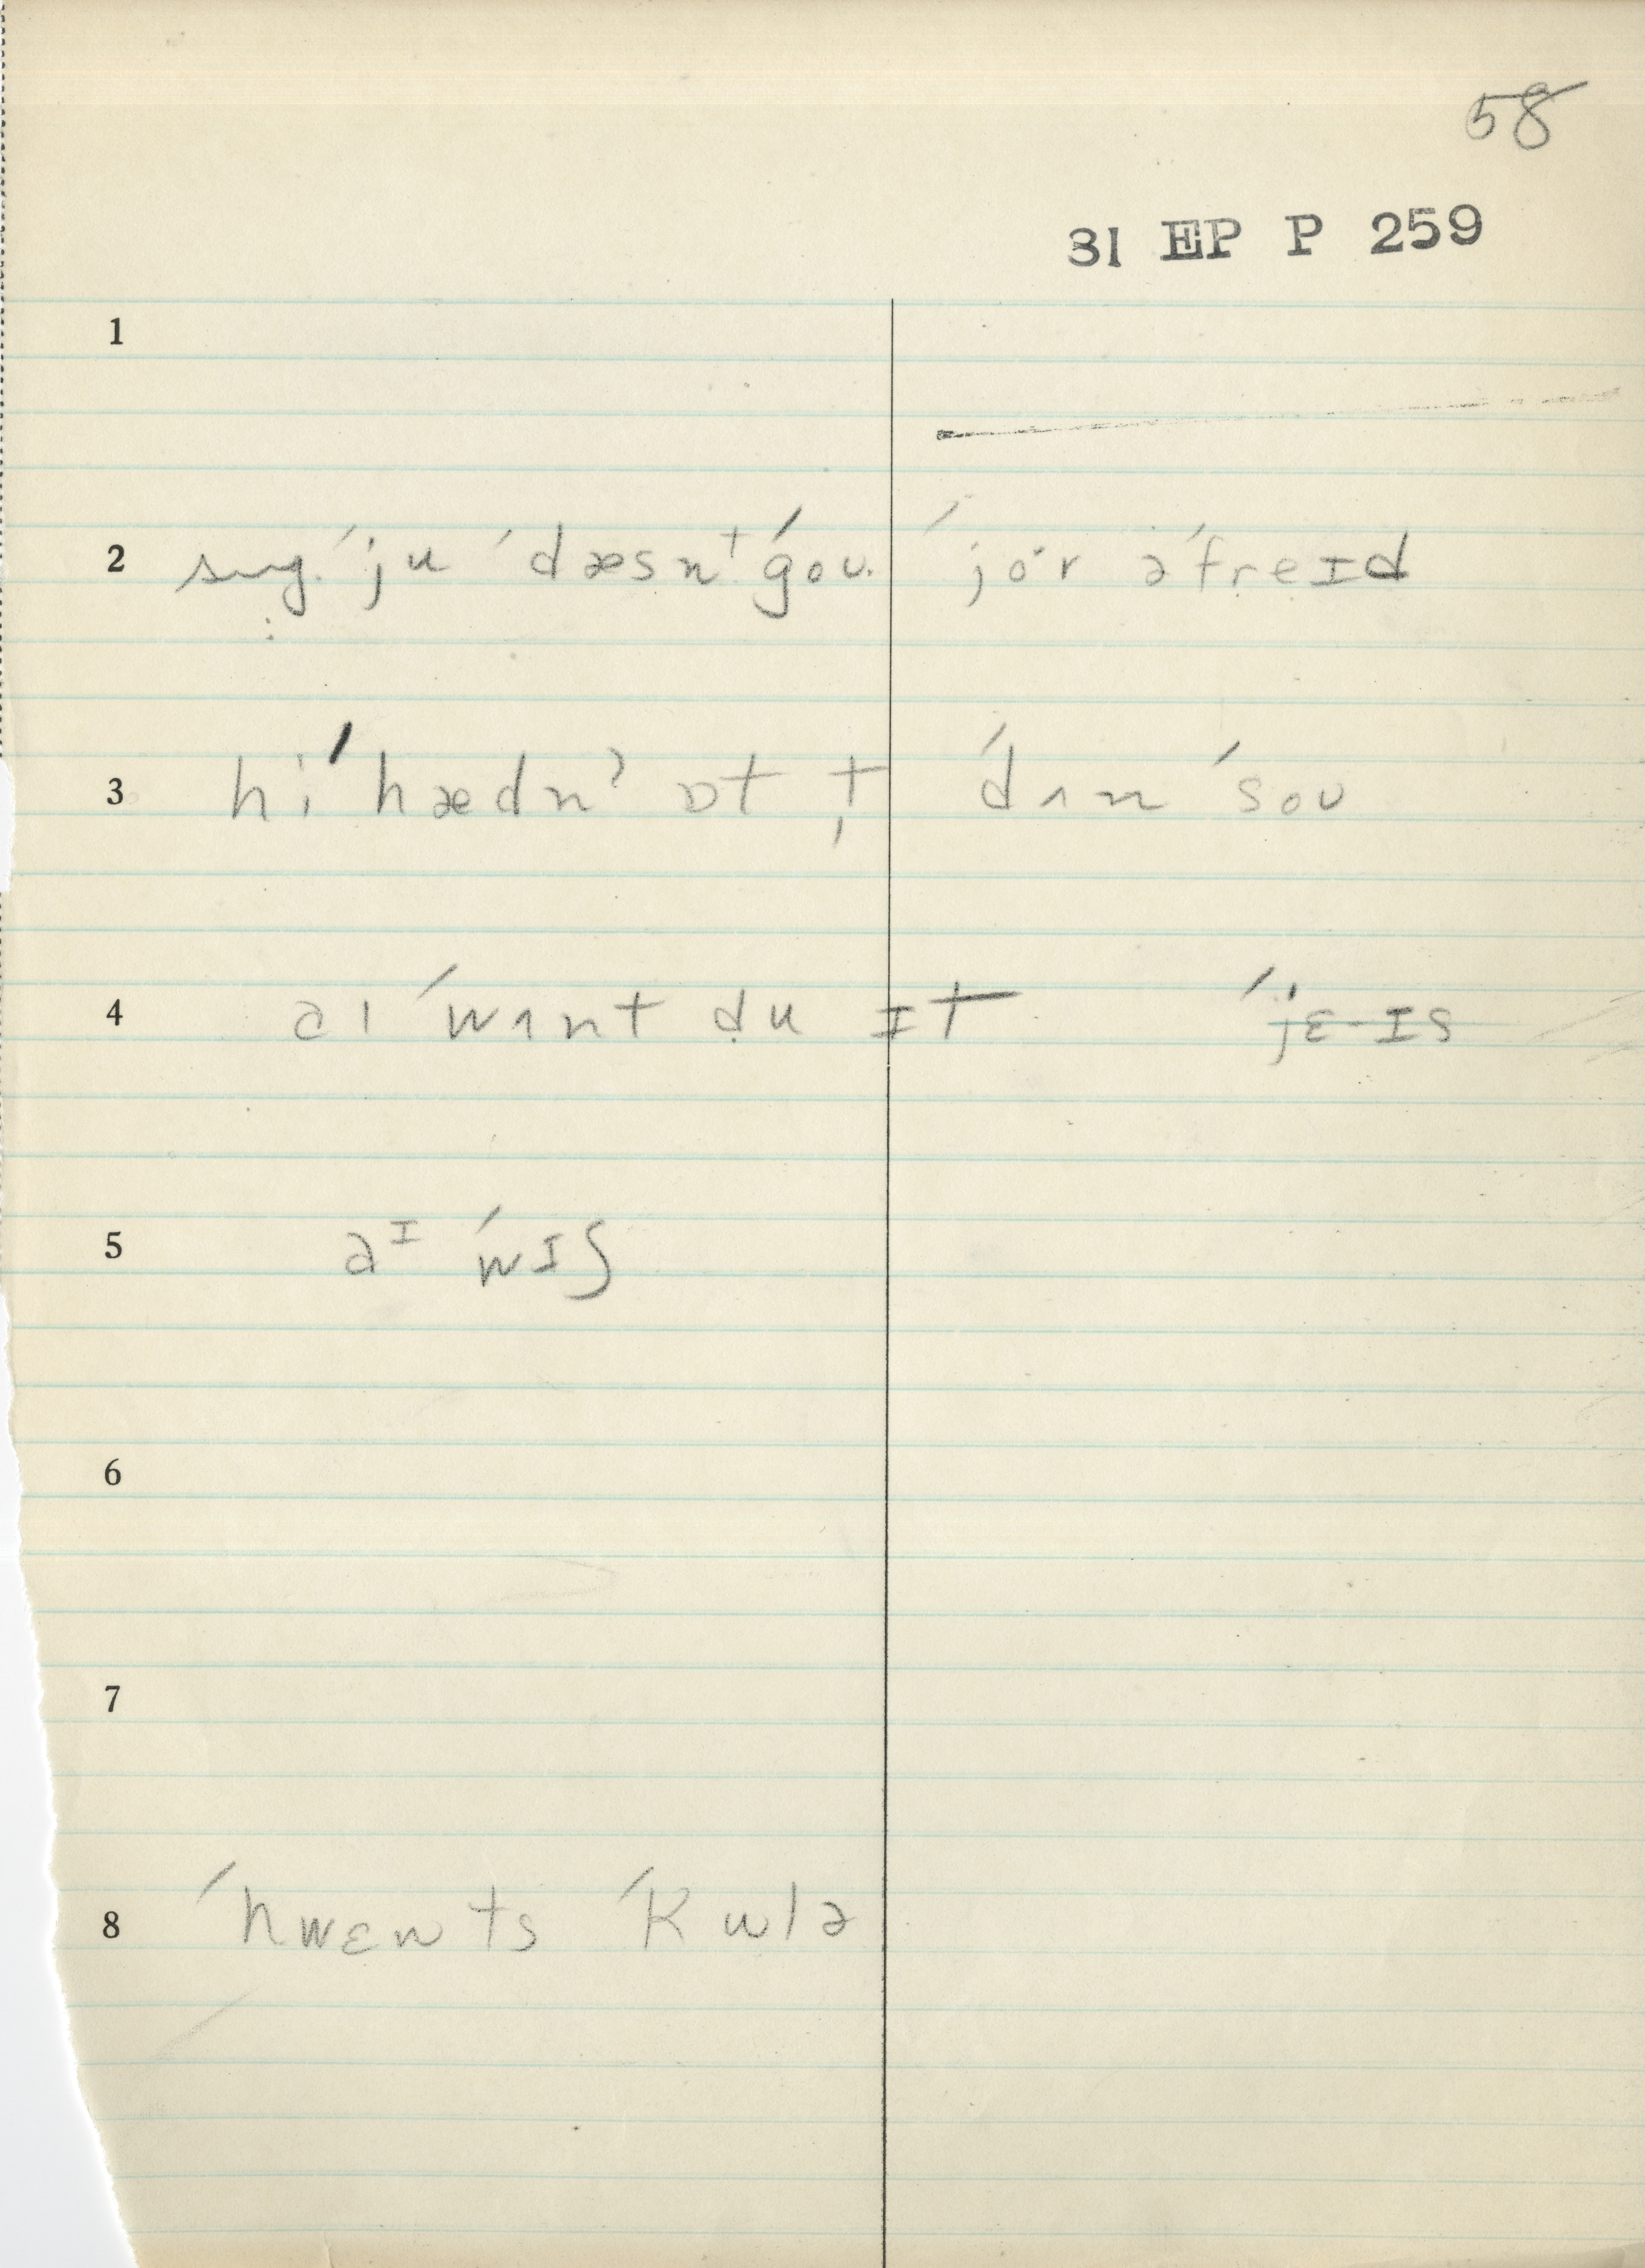 58
31 EP P 259
1
2 sug. ˈju ˈdæsn't ˈgoʊ. ˈjo·r əˈfreɪd
3 hi ˈhædnˀ ɒt t̩ ˈdʌn ˈsoʊ
4 aɪ ˈwʌnt d̥u ɪt ˈjɛ-ɪs
5 aᴵ ˈwɪʃ
6
7
8 ˈhwɛnts ˈKulə